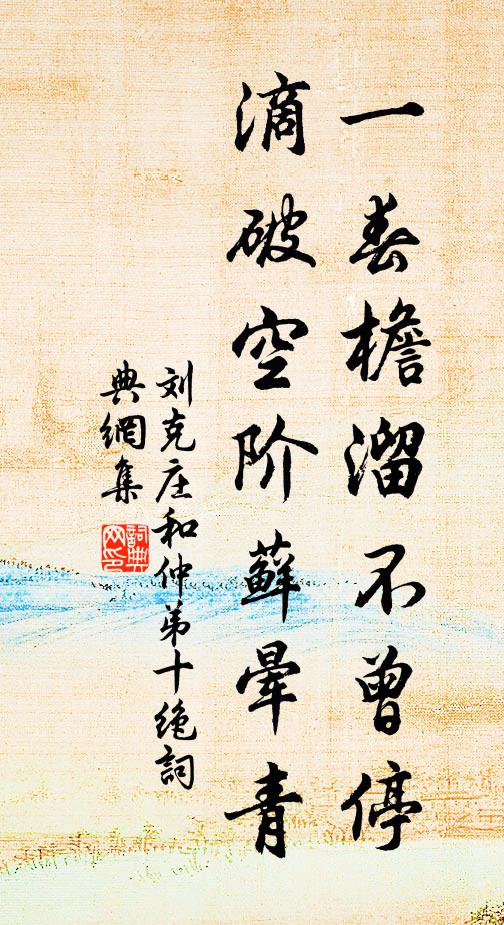 一春檐溜不曾停
滴破空阶藓晕青
刘克庄和仲弟十绝词
典網集
詞典网印